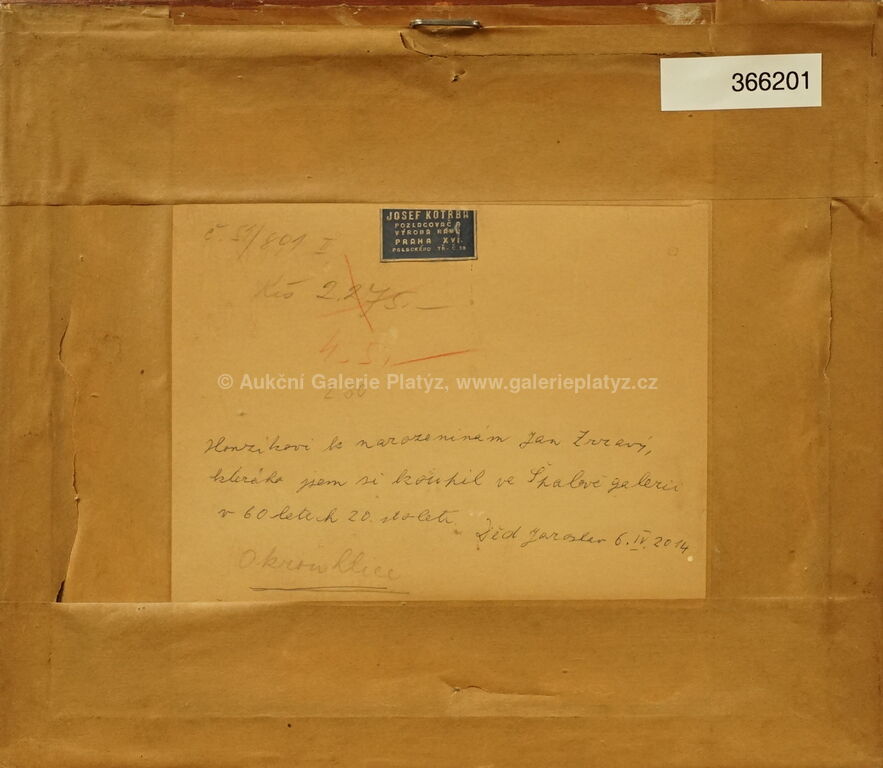 366201
JOSEF KOTRBA
POZLACOVAČ A
VÝROBA RÁMŮ
PRAHA XVI.
PALACKÉHO TŘ. Č. 19
č. 51/801 II
Kčs 2.275.—
4.5.—
© Aukční Galerie Platýz, www.galerieplatyz.cz
Honzíkovi k narozeninám Jan Zrzavý,
kterého jsem si koupil ve Špálově galerii
v 60 letech 20. století.
Děd Jaroslav 6.IV.2014
Okrouhlice